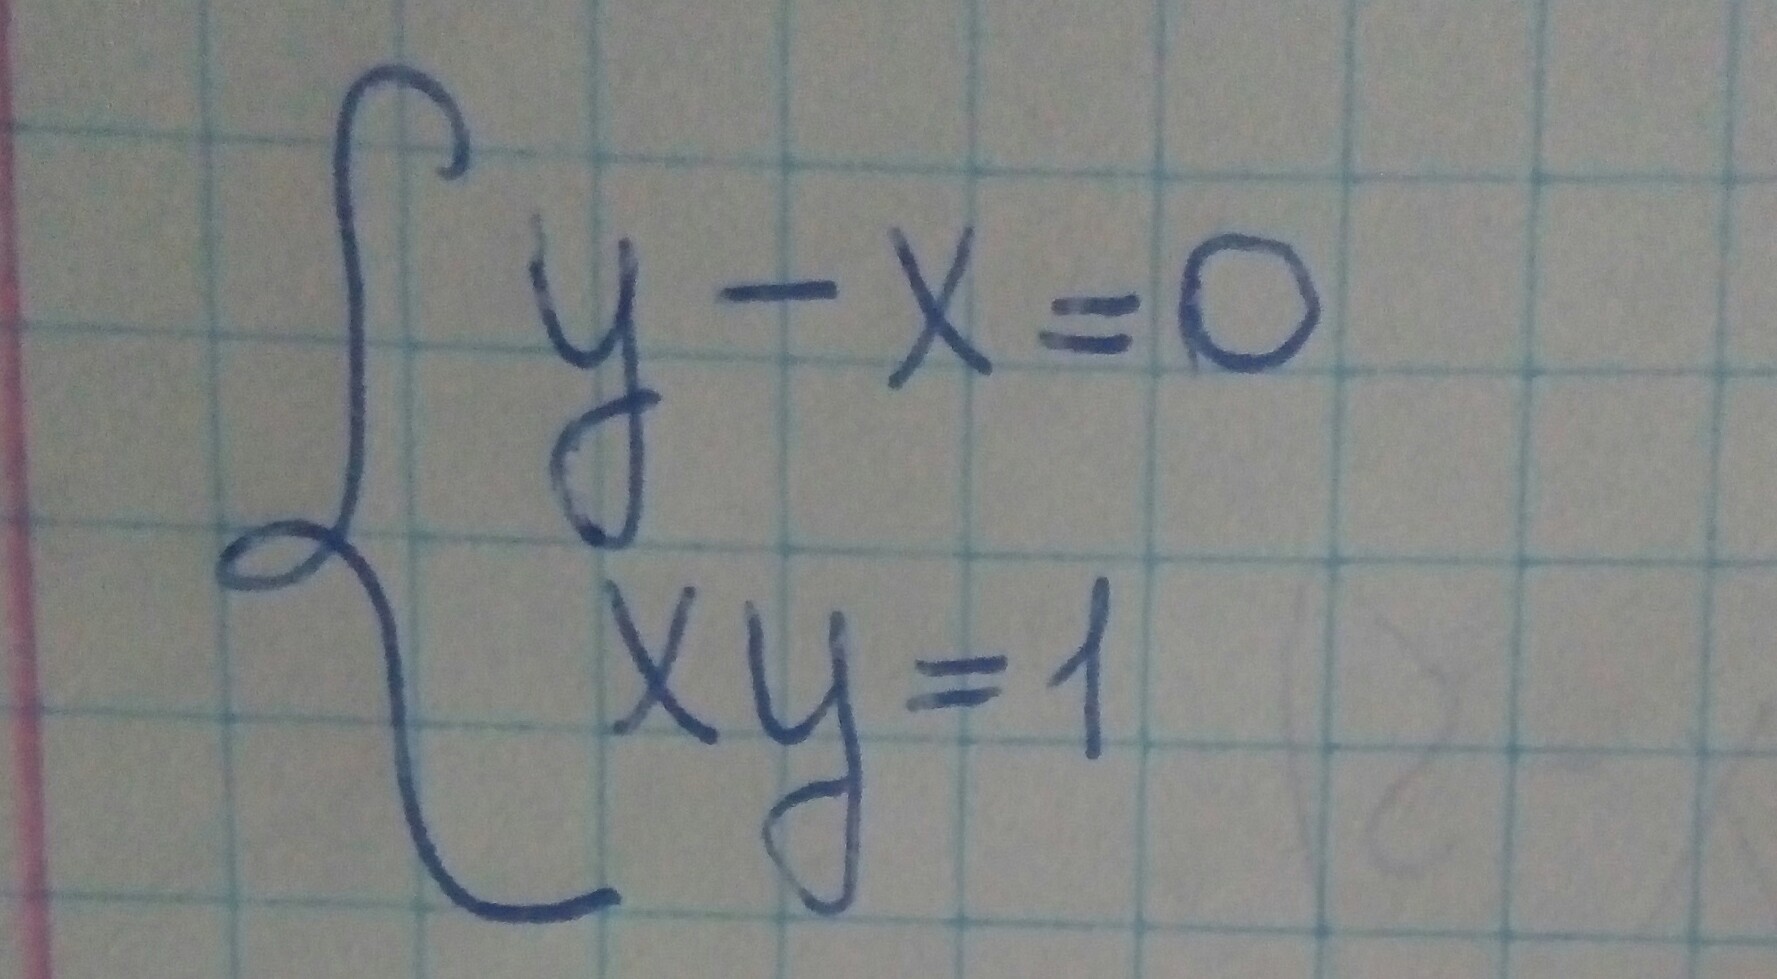 y - x = 0
xy = 1